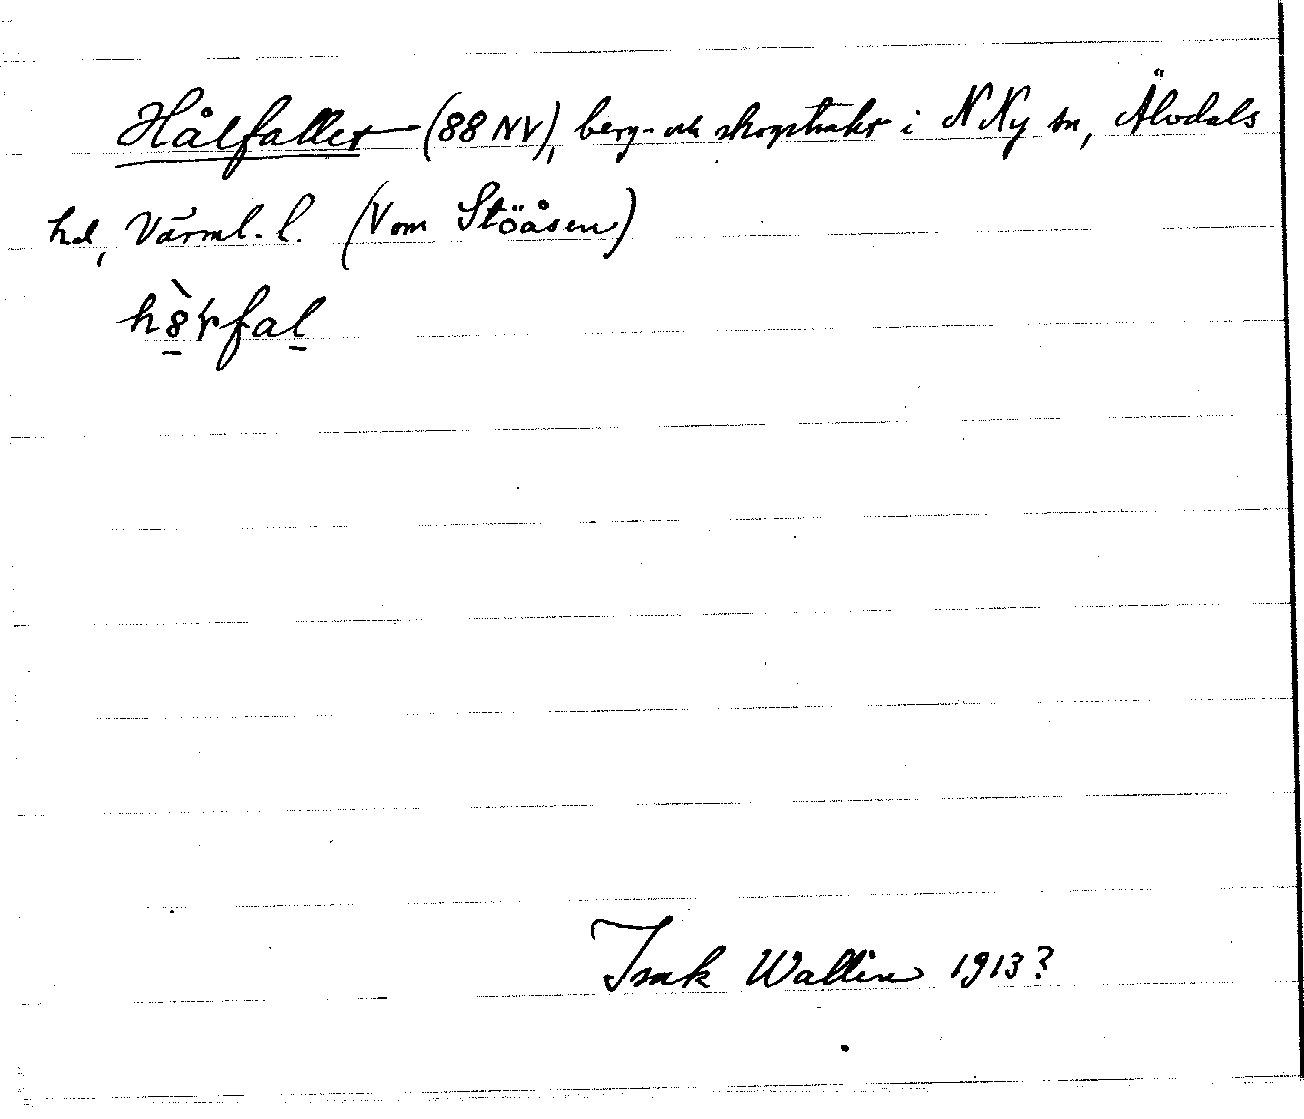 Hålfallet (88 NV), berg- och skogstrakt i N Ny sn, Älvdals
hd, Värml. l. (V om Stöåsen)
Isak Wallin 1913?